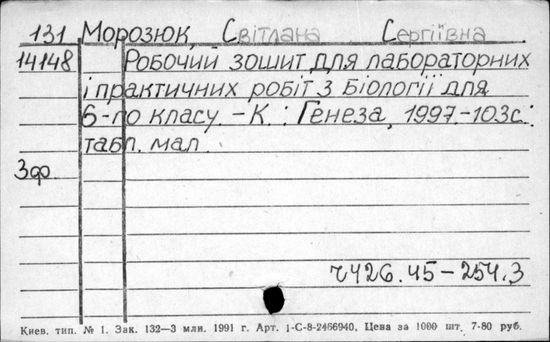 131 Морозюк, Світлана Сергіївна
14148 Робочий зошит для лабораторних
і практичних робіт з біології для
6-го класу. - К. : Генеза, 1997.-103с.:
табл. мал.
3ф.
ч426.45-254.3
Киев. тип. № 1. Зак. 132—3 млн. 1991 г. Арт. 1-С-8-2466940. Цена за 1000 шт. 7-80 руб.